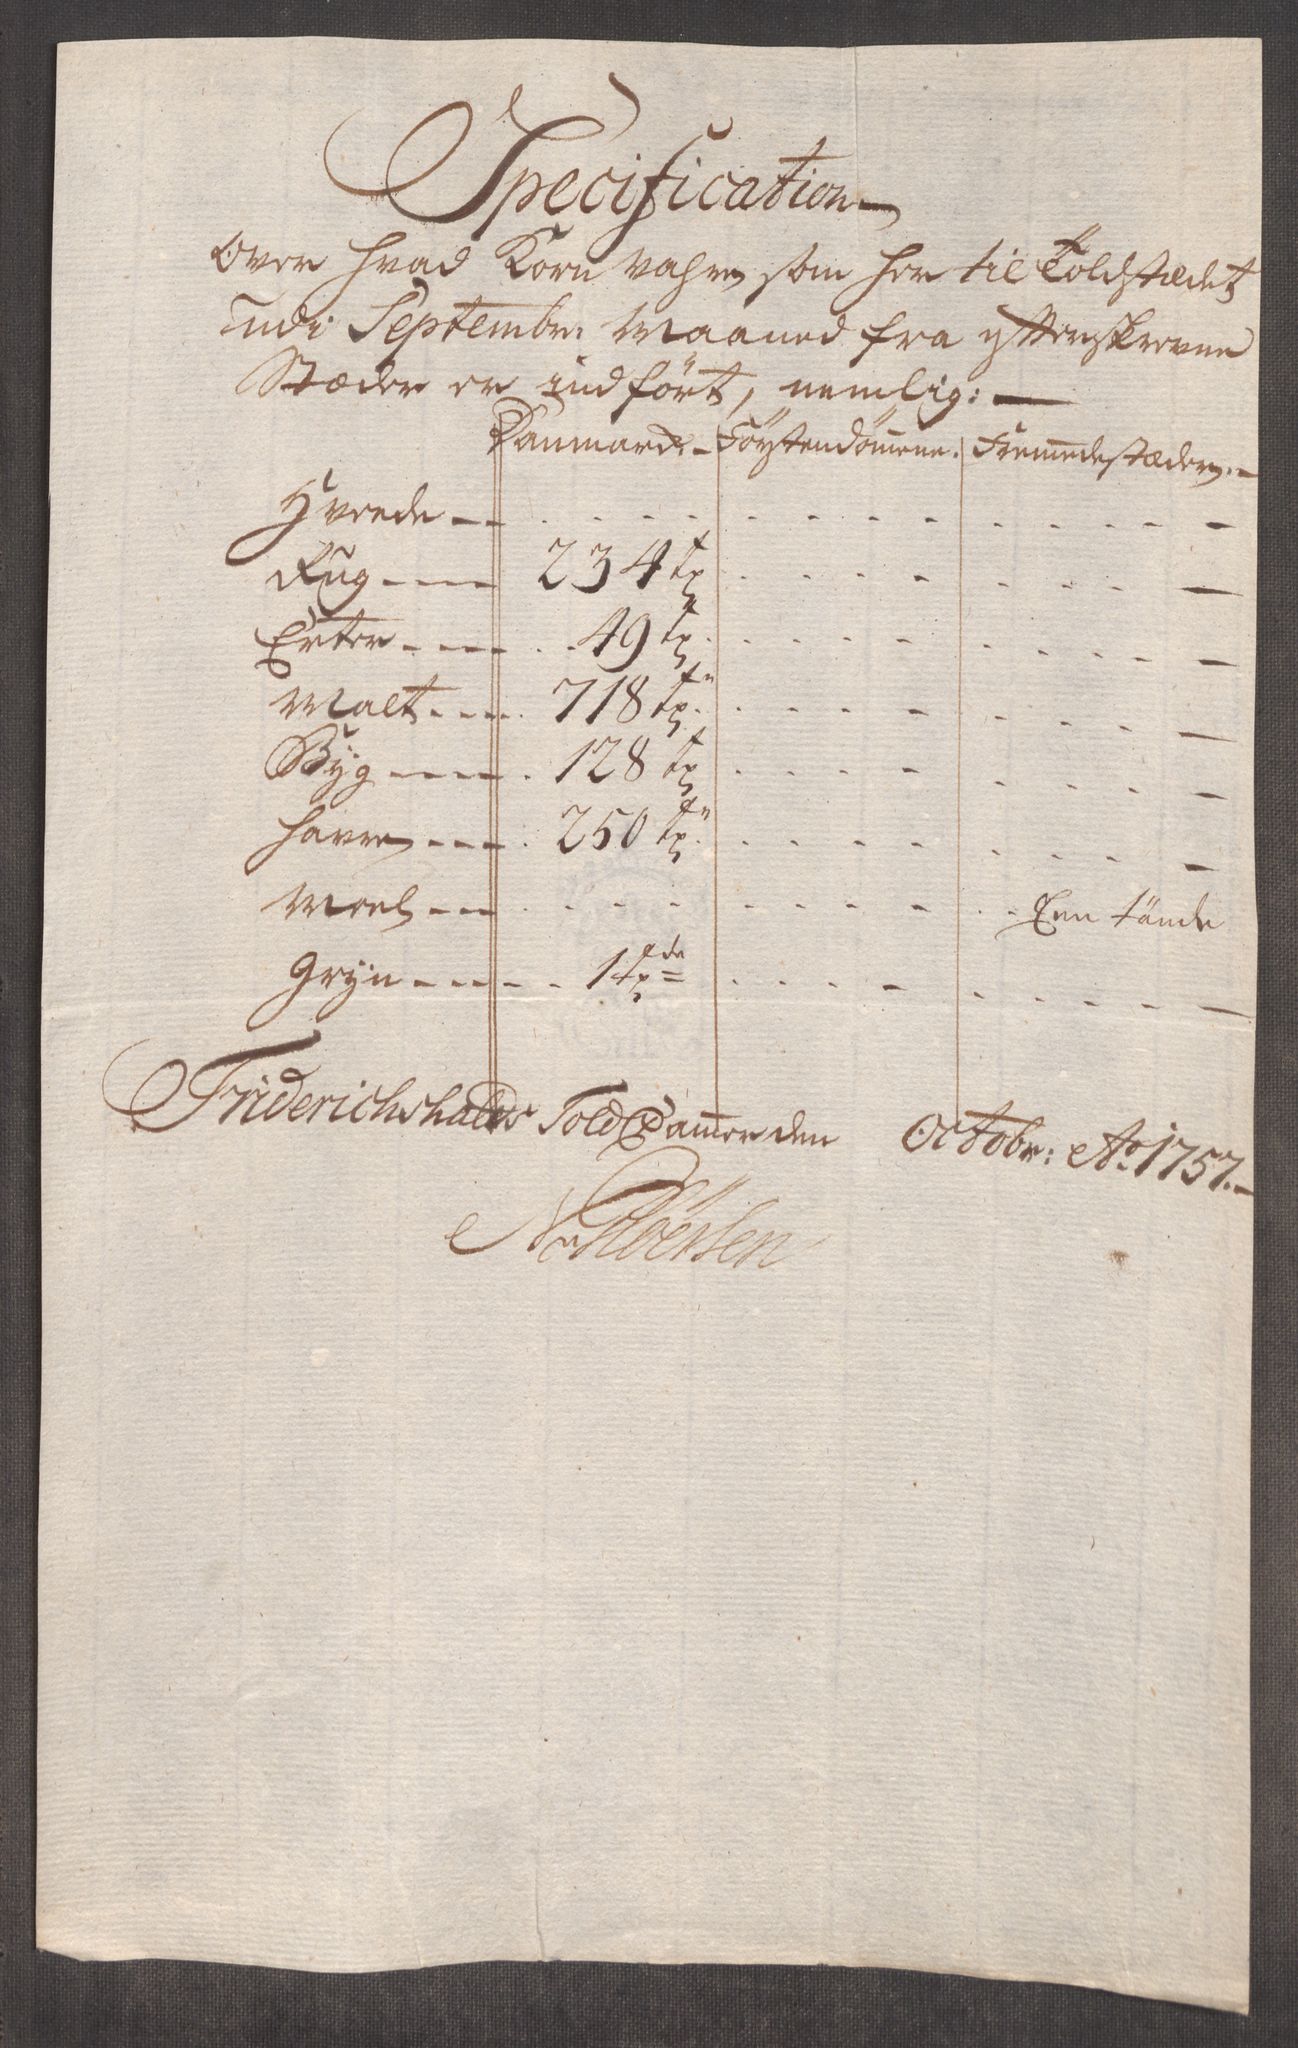 Specification
Over hvad Korn vahre som her til Toldstædet
udi Septembr: Maaned fra ytterskrevne
Stæder er indfört, nemlig:
Danmark Förstendömene. Fremmede stæder.
Hvede
Rug 234 tr
Erter 49 tr
Malt 718 tr
Byg 128 tr
Havre 250 tr
Meel Een tönde
Gryn 1 tde
Friderichshalds Told Cammer den Octobr: Ao 1757.